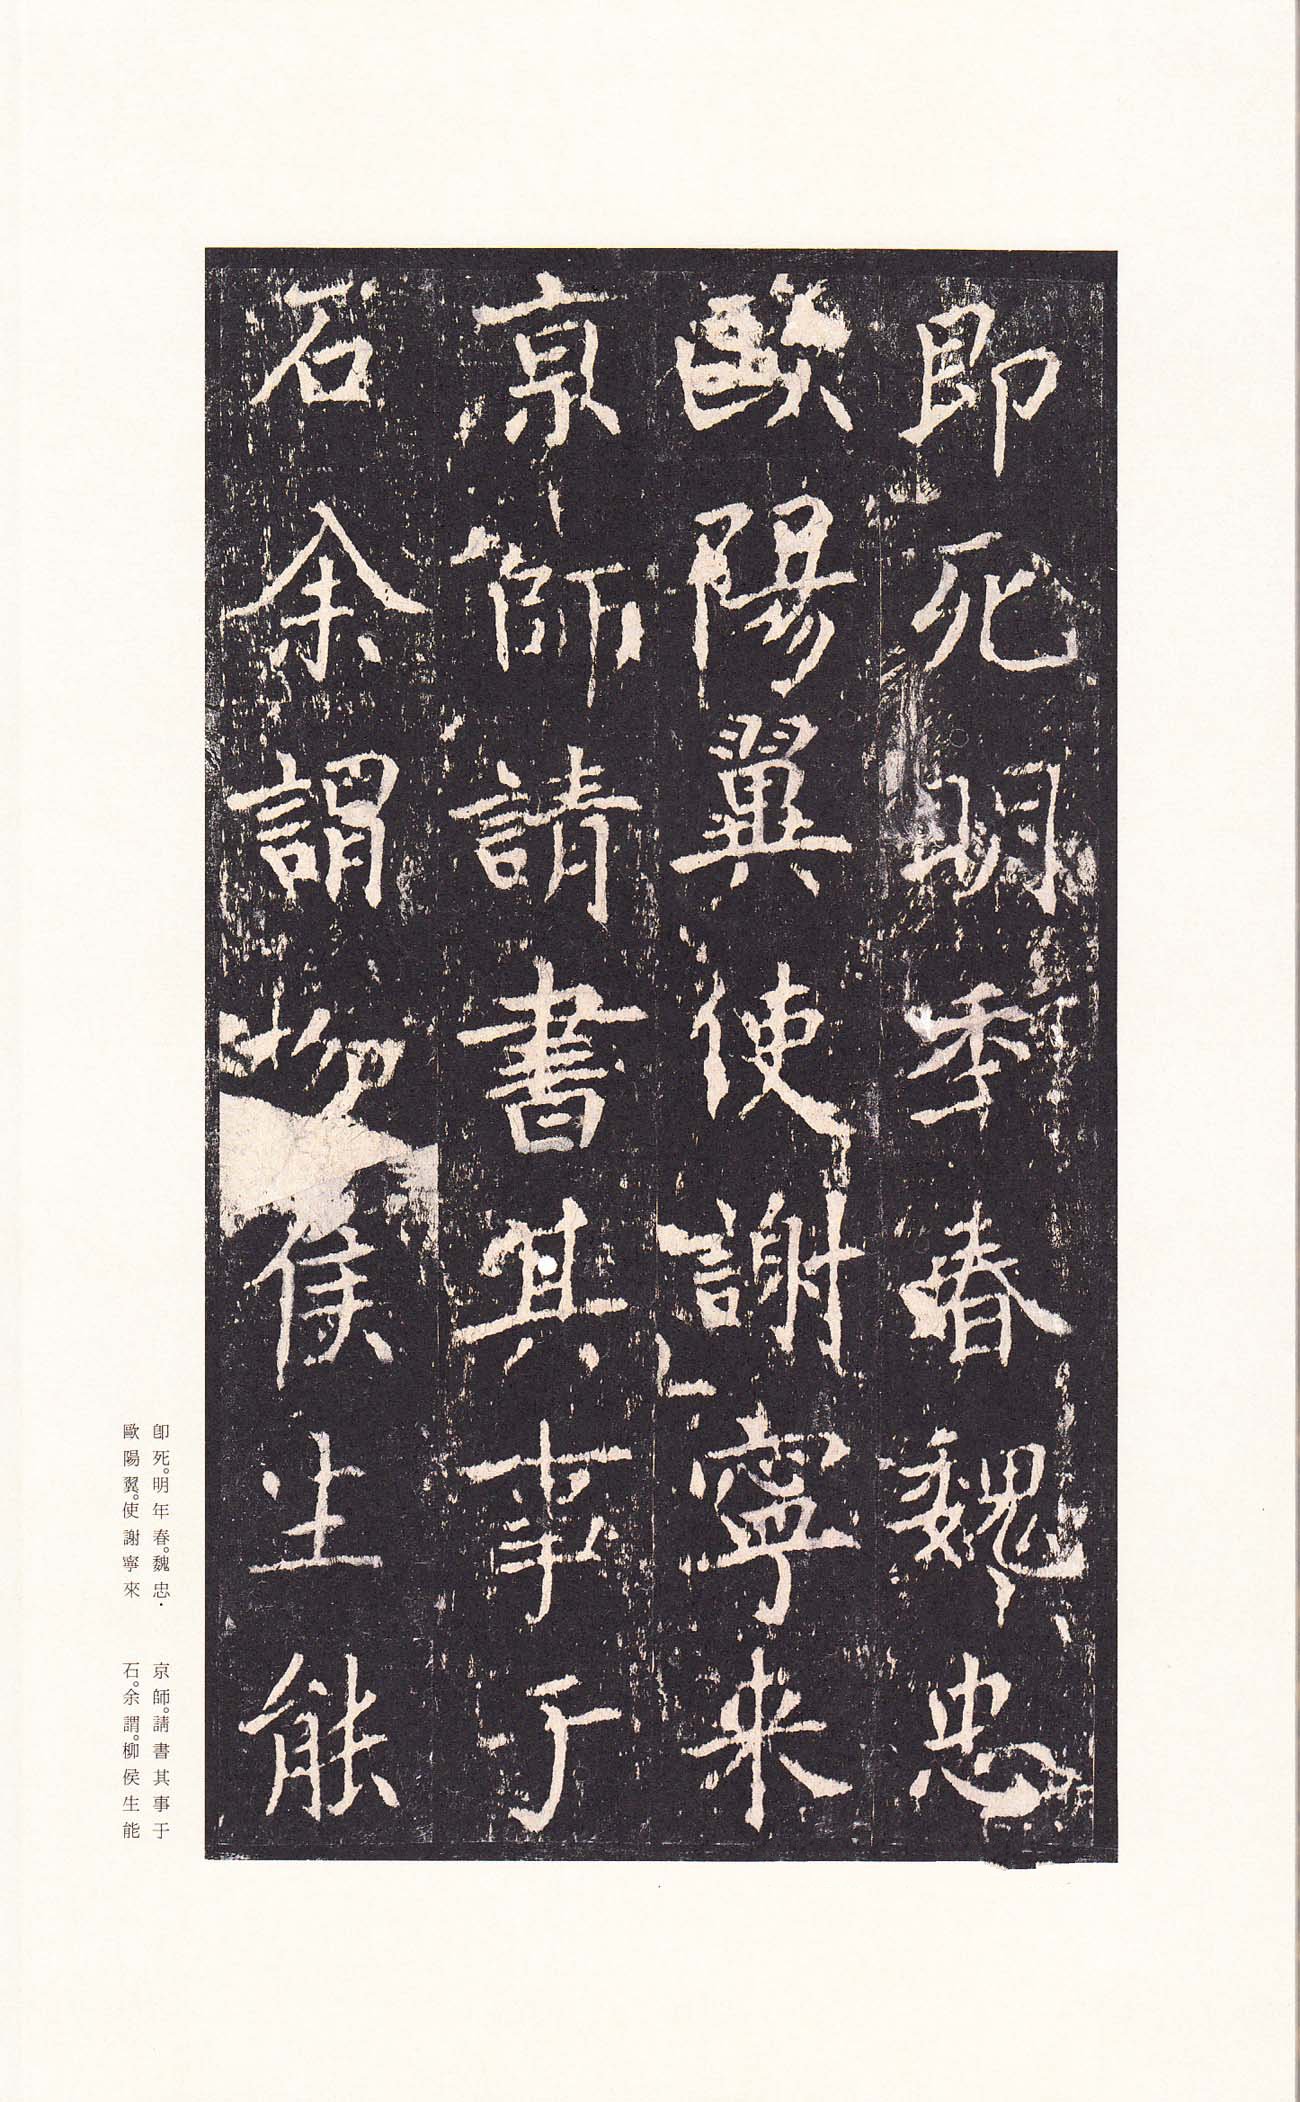 即死明年春魏忠
歐陽翼使謝寧來
京師請書其事于
石余謂柳侯生能
卽死。明年春。魏忠·
歐陽翼。使謝寧來
京師。請書其事于
石。余謂。柳侯生能